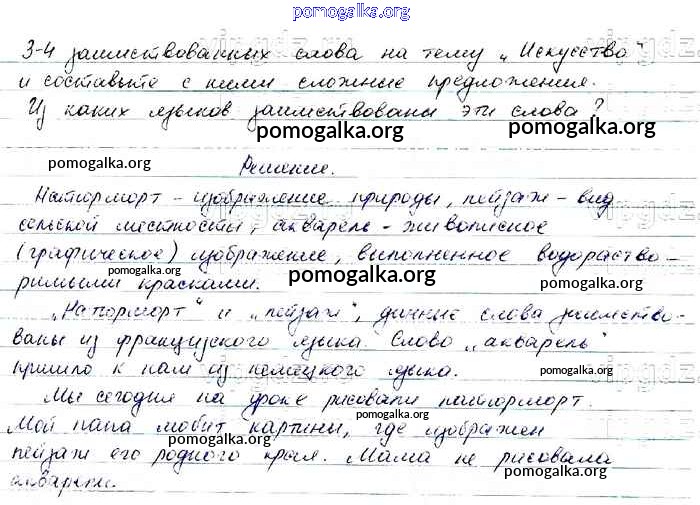 pomogalka.org
3-4 заимствованных слова на тему „Искусство"
и составьте с ними сложные предложения.
Из каких языков заимствованы эти слова?
pomogalka.org pomogalka.org
pomogalka.org Решение.
Натюрморт - изображение природы, пейзаж - вид
сельской местности, акварель - живописное
(графическое) изображение, выполненное водораство-
римыми красками.
pomogalka.org pomogalka.org pomogalka.org
„Натюрморт" и „пейзаж", данные слова заимство-
ваны из французского языка. Слово „акварель"
пришло к нам из немецкого языка.
pomogalka.org
Мы сегодня на уроке рисовали натюрморт.
pomogalka.org
Мой папа любит картины, где изображен
пейзаж его родного края. Мама не рисовала
pomogalka.org pomogalka.org
акварели.